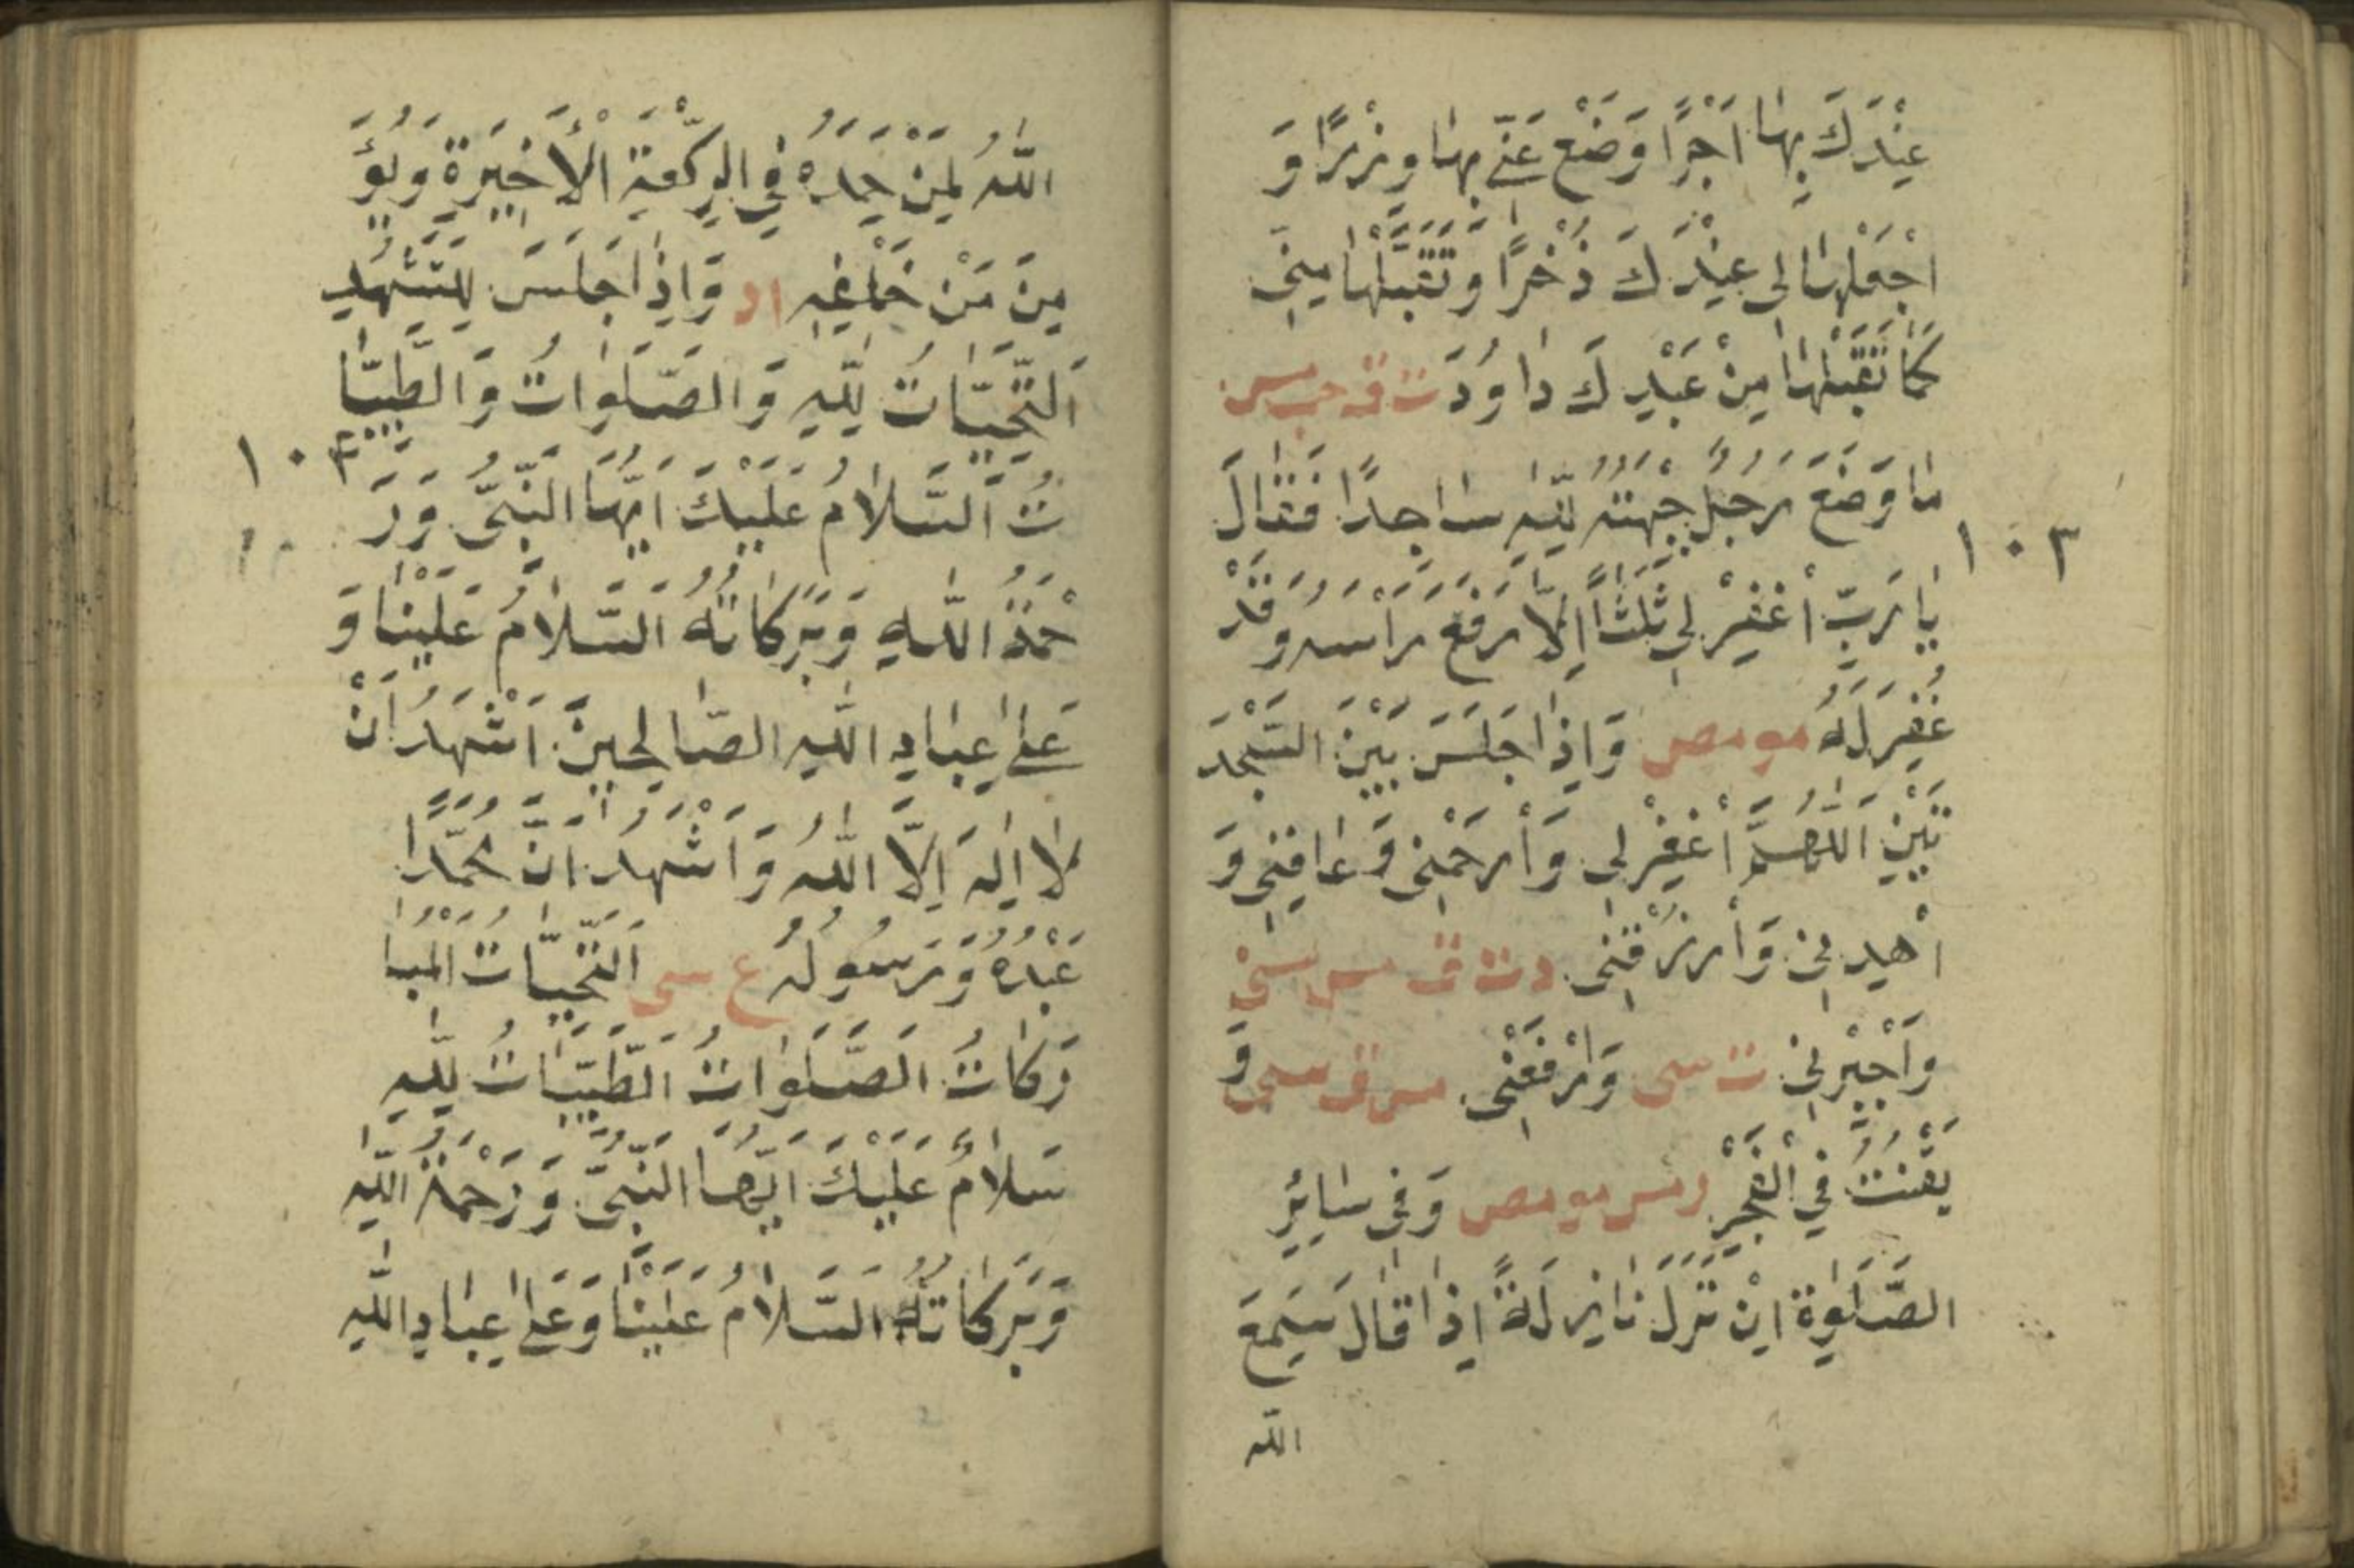 عِنْدَكَ بِهَا اَجْرًا وَضَعْ عَنِّي بِهَا وِزْرًا وَ
اجْعَلْهَا لِى عِنْدَكَ ذُخْرًا وَتَقَبَّلْهَا مِنِّى
كَمَا تَقَبَّلْتَهَا مِنْ عَبْدِكَ دَاوُدَ ت ق حب مس
مَا وَضَعَ رَجُلٌ جَبْهَتَهُ لِلّٰهِ سَاجِدًا فَقَالَ
١٠٣
يَا رَبِّ اغْفِرْ لِى ثَلٰثًا اِلَّا رَفَعَ رَأْسَهُ وَقَدْ
غُفِرَ لَهُ مو مص وَاِذَا جَلَسَ بَيْنَ السَّجْدَ
تَيْنِ اَللّٰهُمَّ اغْفِرْ لِى وَارْحَمْنِى وَعَافِنِى وَ
اهْدِنِى وَارْزُقْنِى د ت ق مس سنى
وَاجْبُرْنِى ت سى وَارْفَعْنِى مس ق سى وَ
يَقْنُتُ فِي الْفَجْرِ ر مس مو مص وَفِى سَائِرِ
الصَّلَوٰةِ اِنْ نَزَلَ نَازِلَةٌ اِذَا قَالَ سَمِعَ
الله
اللّٰهُ لِمَنْ حَمِدَهُ فِي الرَّكْعَةِ الْأَخِيرَةِ وَيُؤَ
مِنَ مَنْ خَلْفَهُ اد وَاِذَا جَلَسَ لِلتَّشَهُّدِ
اَلتَّحِيَّاتُ لِلّٰهِ وَالصَّلَوَاتُ وَالطَّيِّبَا
١٠٤
تُ اَلسَّلَامُ عَلَيْكَ اَيُّهَا النَّبِىُّ وَرَ
حْمَةُ اللّٰهِ وَبَرَكَاتُهُ اَلسَّلَامُ عَلَيْنَا وَ
عَلٰى عِبَادِ اللّٰهِ الصَّالِحِينَ اَشْهَدُ اَنْ
لَا اِلٰهَ اِلَّا اللّٰهُ وَاَشْهَدُ اَنَّ مُحَمَّدًا
عَبْدُهُ وَرَسُولُهُ ع سى اَلتَّحِيَّاتُ الْمُبَا
رَكَاتُ اَلصَّلَوَاتُ اَلطَّيِّبَاتُ لِلّٰهِ
سَلَامٌ عَلَيْكَ اَيُّهَا النَّبِىُّ وَرَحْمَةُ اللّٰهِ
وَبَرَكَاتُهُ اَلسَّلَامُ عَلَيْنَا وَعَلٰى عِبَادِ اللّٰهِ